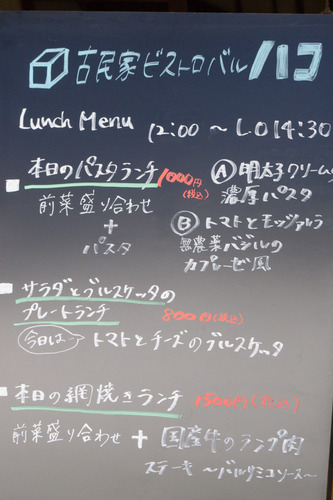 古民家ビストロバル ハコ
Lunch Menu 12:00 ~ L.O 14:30
本日のパスタランチ 1000円(税込)
前菜盛り合わせ
+
パスタ
Ⓐ 明太子クリームの
濃厚パスタ
Ⓑ トマトとモッツァレラ
無農薬バジルの
カプレーゼ風
サラダとブルスケッタの
プレートランチ 800円(税込)
今日は トマトとチーズのブルスケッタ
本日の網焼きランチ 1500円(税込)
前菜盛り合わせ + 国産牛のランプ肉
ステーキ 〜バルサミコソース〜